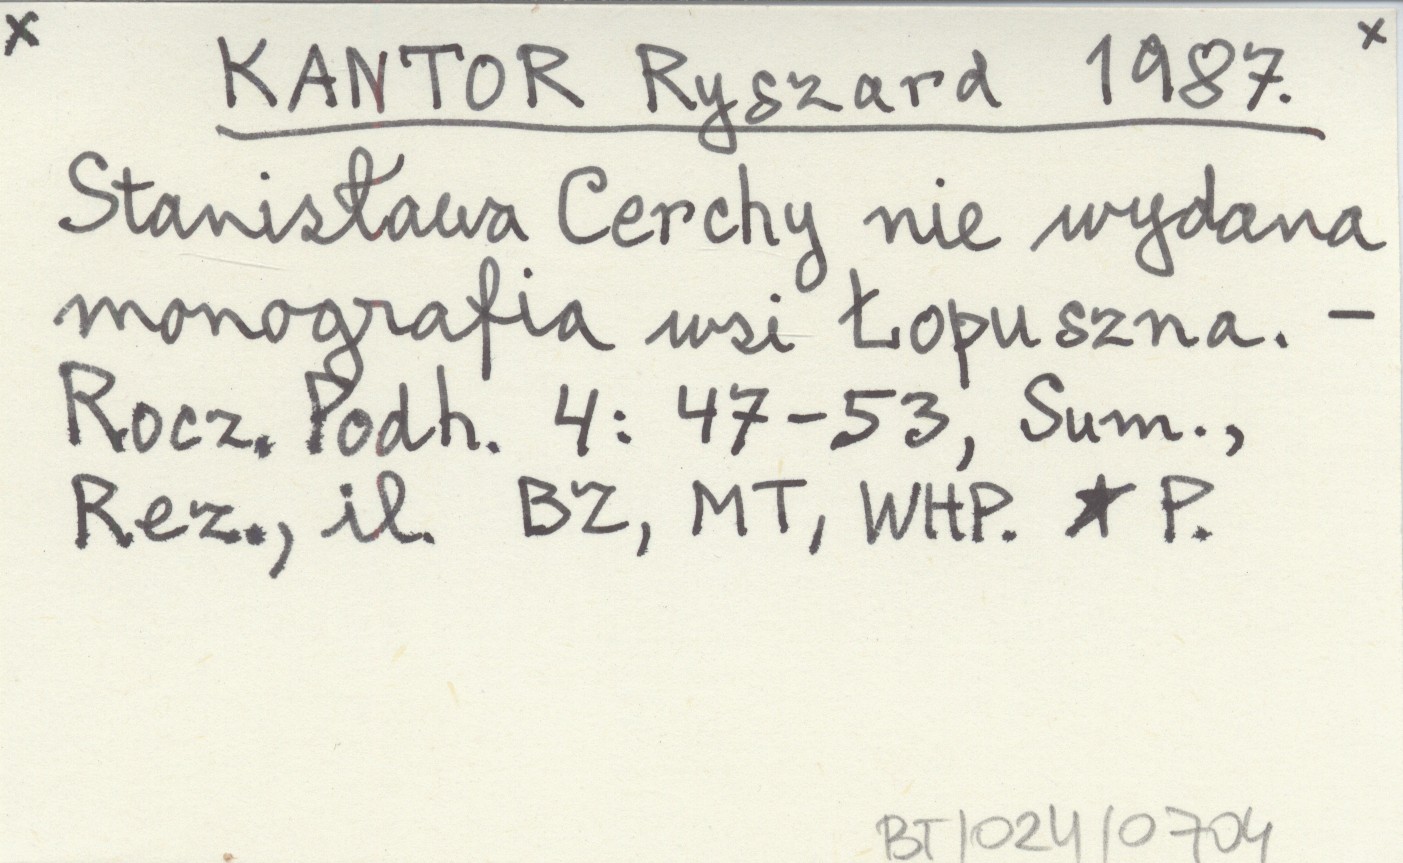 x x
KANTOR Ryszard 1987.
Stanisława Cerchy nie wydana
monografia wsi Łopuszna. -
Rocz. Podh. 4: 47-53, Sum.,
Rez., il. BZ, MT, WHP. ★ P.
BT/024/0704